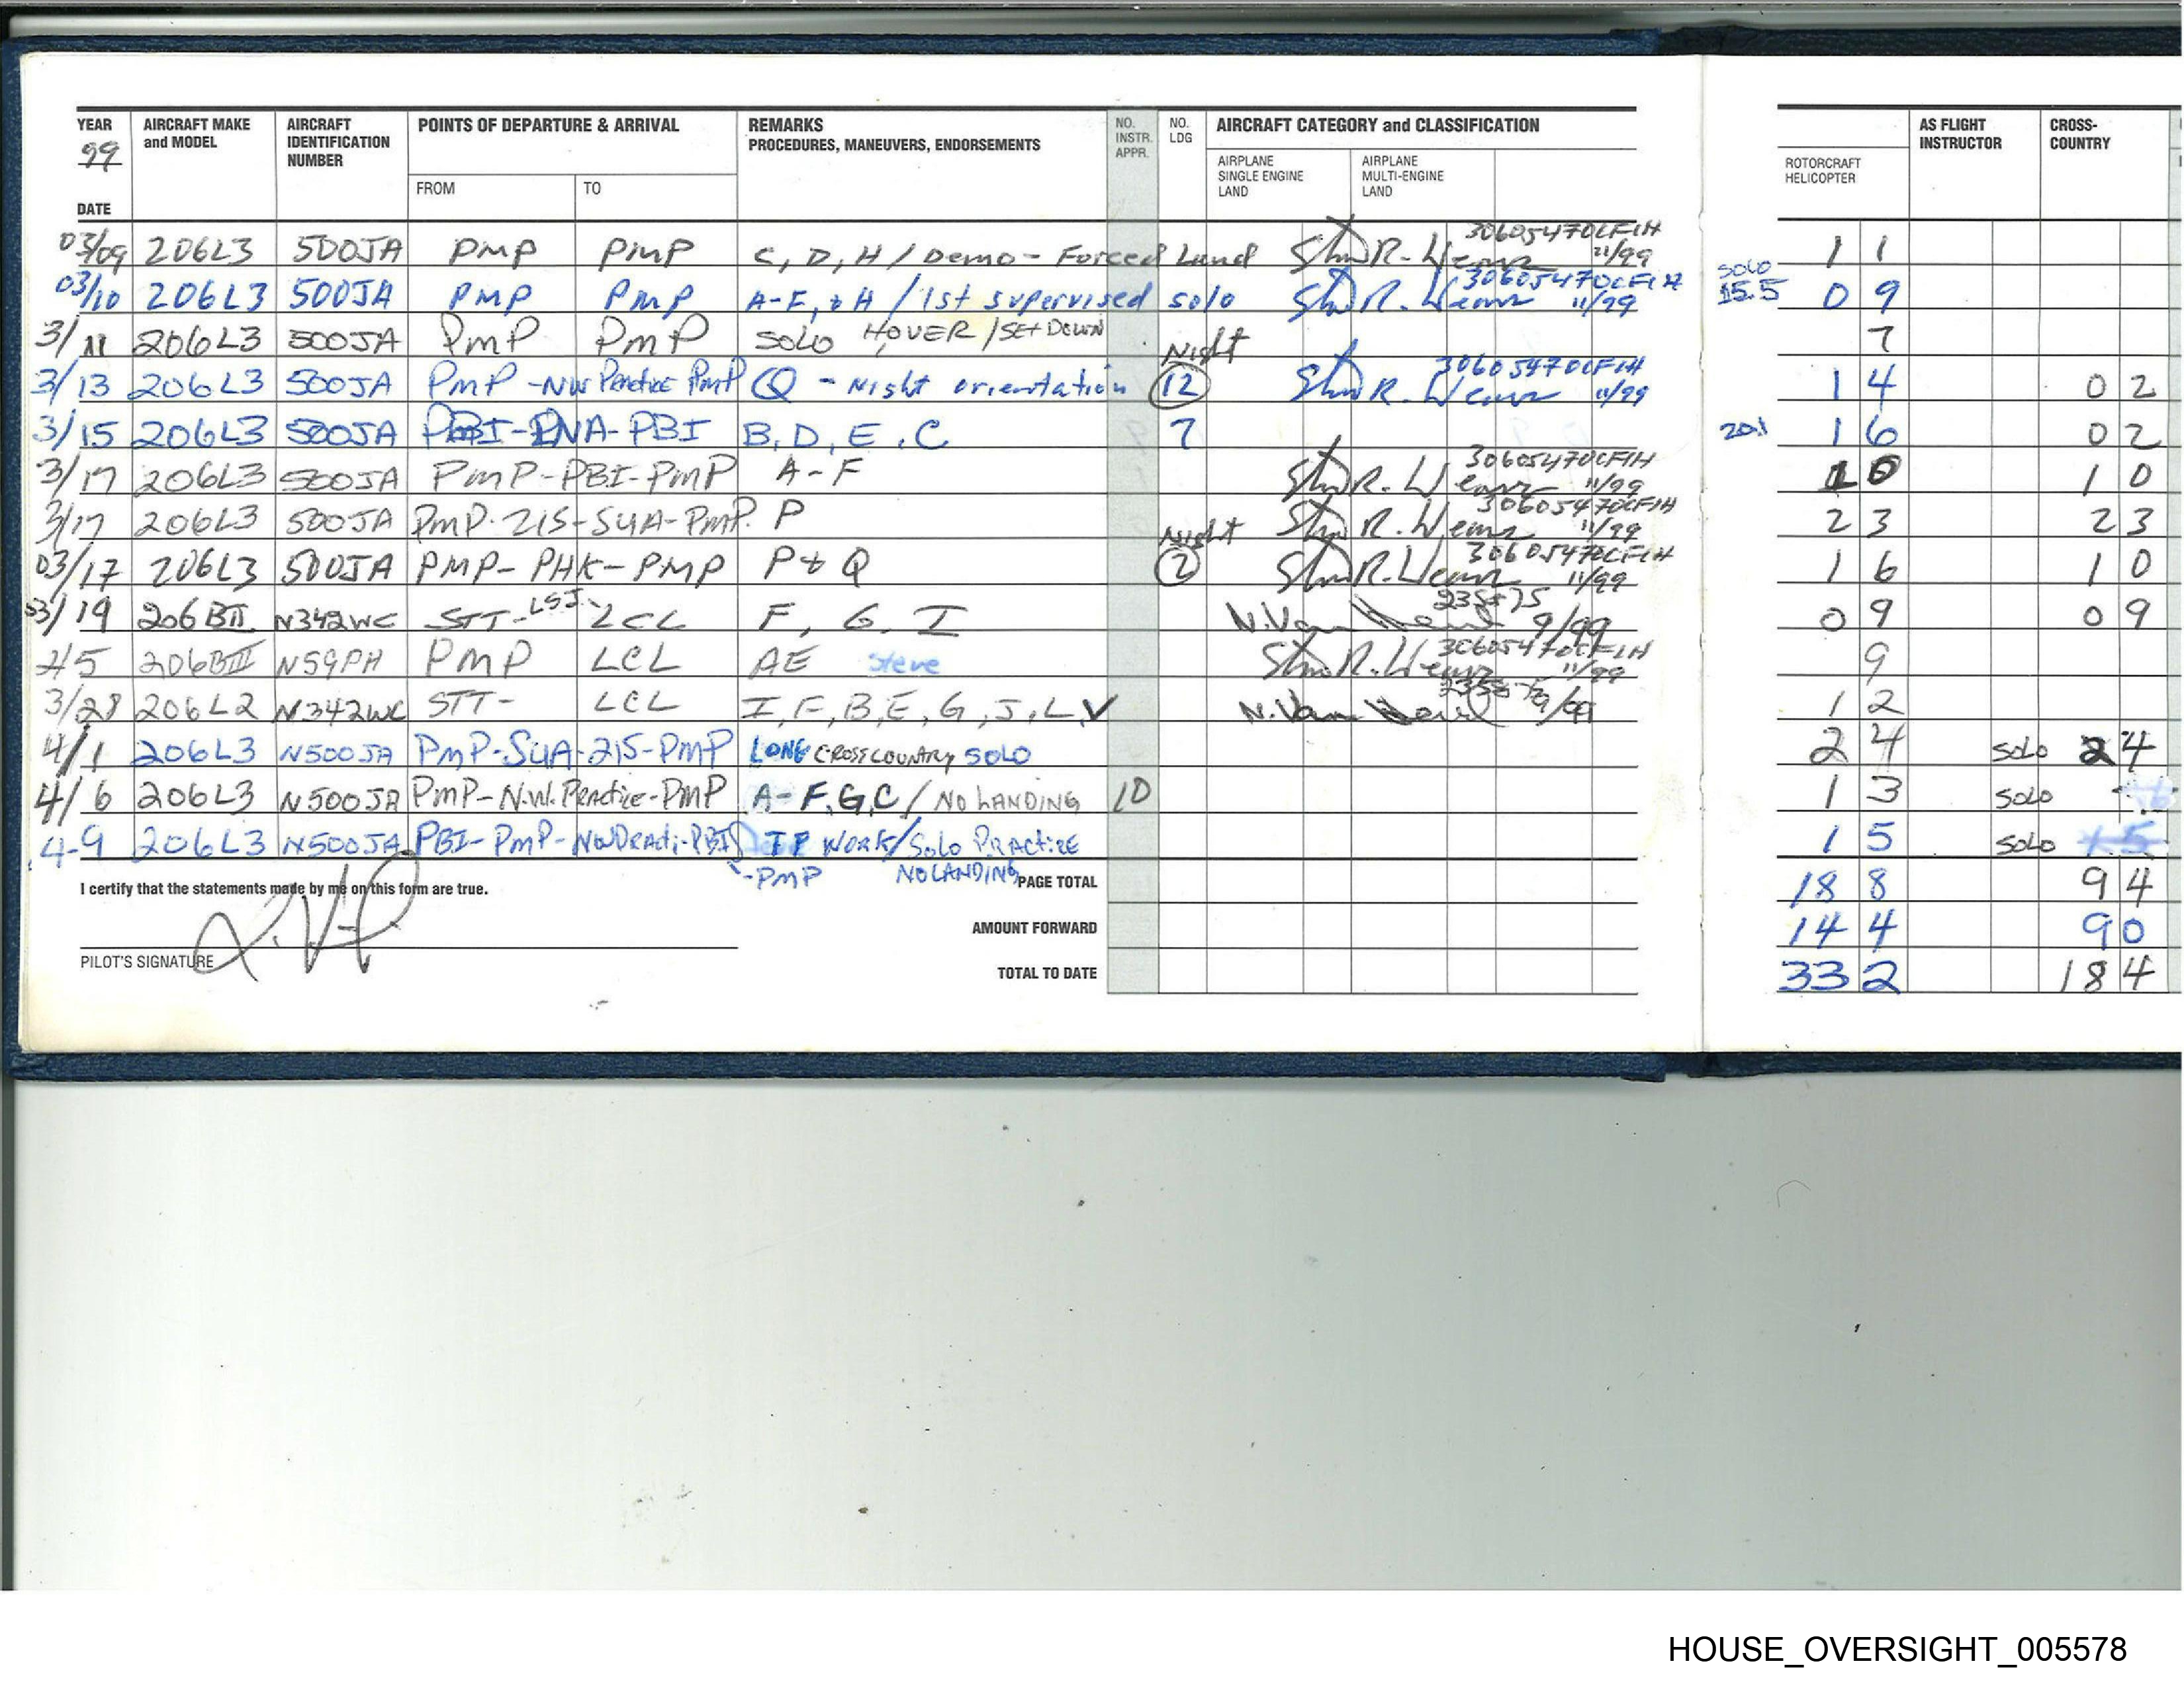 YEAR 99 AIRCRAFT MAKE and MODEL AIRCRAFT IDENTIFICATION NUMBER POINTS OF DEPARTURE & ARRIVAL REMARKS PROCEDURES, MANEUVERS, ENDORSEMENTS NO. INSTR. APPR. NO. LDG AIRCRAFT CATEGORY and CLASSIFICATION AS FLIGHT INSTRUCTOR CROSS-COUNTRY
AIRPLANE SINGLE ENGINE LAND AIRPLANE MULTI-ENGINE LAND ROTORCRAFT HELICOPTER
DATE FROM TO
03/09 206L3 500JA PMP PMP C, D, H / Demo - Forced Land 306054700CFIH 11/99 1 1
03/10 206L3 500JA PMP PMP A-F, & H / 1st supervised solo 306054700CFIH 11/99 solo 15.5 0 9
3/11 206L3 500JA PMP PMP SOLO HOVER / SET DOWN 7
3/13 206L3 500JA PMP -NW Practice PMP Q - Night orientation Night 12 306054700CFIH 11/99 1 4 0 2
3/15 206L3 500JA PBI-LNA-PBI B, D, E, C 7 20.1 1 6 0 2
3/17 206L3 500JA PMP-PBI-PMP A-F 306054700CFIH 11/99 1 0 1 0
3/17 206L3 500JA PMP-215-SUA-PMP. P 306054700CFIH 11/99 2 3 2 3
03/17 206L3 500JA PMP-PHK-PMP P & Q Night 2 306054700CFIH 11/99 1 6 1 0
03/19 206BIII N342WC STT-LSJ- LCL F, G, I 9/99 0 9 0 9
206BIII N59PH PMP LCL AE Steve 306054700CFIH 11/99 9
3/28 206L2 N342WC STT- LCL I, F, B, E, G, J, L, V 9/99 1 2
4/1 206L3 N500JA PMP-SUA-215-PMP LONG CROSSCOUNTRY SOLO 2 4 SOLO 2 4
4/6 206L3 N500JA PMP-N.W. Practice-PMP A-F,G,C / NO LANDING 10 1 3 SOLO
4-9 206L3 N500JA PBI-PMP-NW Practi-PBI WORK/Solo PRACTICE 1 5 SOLO
-PMP NO LANDING
I certify that the statements made by me on this form are true. PAGE TOTAL 18 8 9 4
AMOUNT FORWARD 14 4 9 0
PILOT'S SIGNATURE TOTAL TO DATE 33 2 18 4
HOUSE_OVERSIGHT_005578